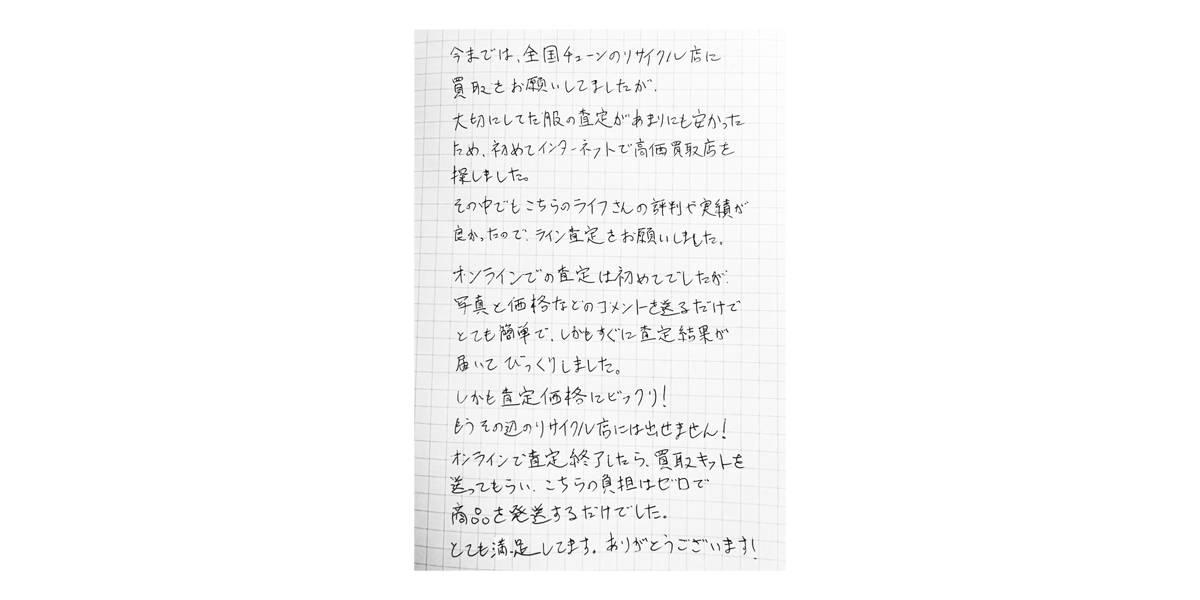 今までは、全国チェーンのリサイクル店に
買取をお願いしてましたが、
大切にしてた服の査定があまりにも安かった
ため、初めてインターネットで高価買取店を
探しました。
その中でもこちらのライフさんの評判や実績が
良かったので、ライン査定をお願いしました。
オンラインでの査定は初めてでしたが、
写真と価格などのコメントを送るだけで
とても簡単で、しかもすぐに査定結果が
届いてびっくりしました。
しかも査定価格にビックリ!
もうその辺のリサイクル店には出せません!
オンラインで査定終了したら、買取キットを
送ってもらい、こちらの負担はゼロで
商品を発送するだけでした。
とても満足してます。ありがとうございます!